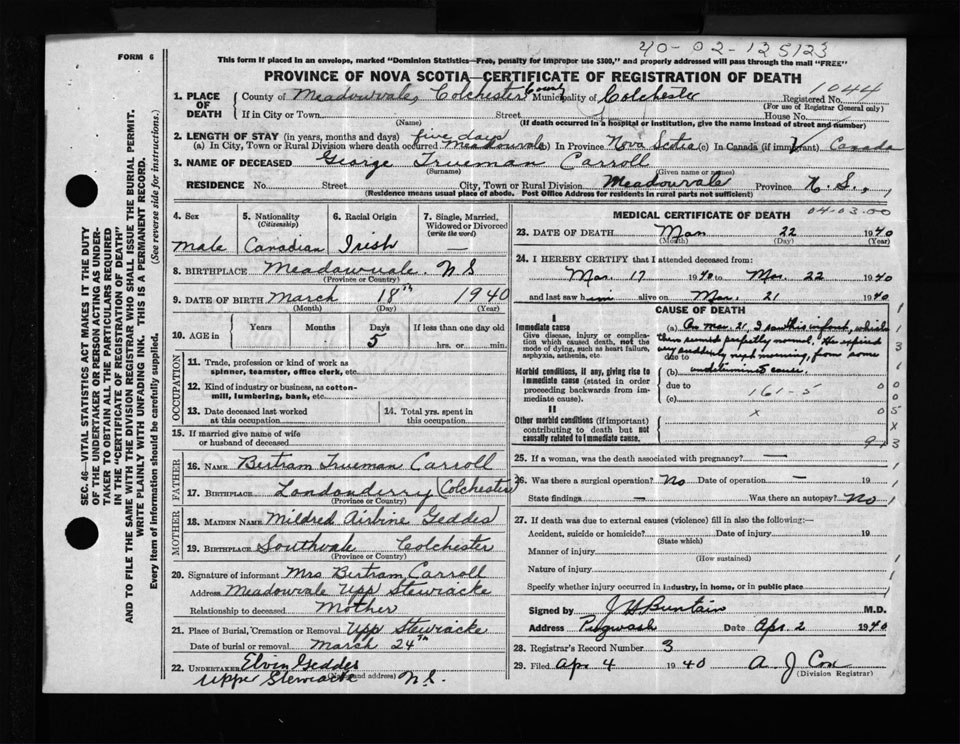 40-02-125123
FORM 6
This form if placed in an envelope, marked "Dominion Statistics—Free, penalty for improper use $300," and properly addressed will pass through the mail "FREE"
PROVINCE OF NOVA SCOTIA—CERTIFICATE OF REGISTRATION OF DEATH
1044
1. PLACE OF DEATH County of Meadowvale, Colchester County Municipality of Colchester Registered No.
(For use of Registrar General only)
If in City or Town Street House No.
(Name) (If death occurred in a hospital or institution, give the name instead of street and number)
2. LENGTH OF STAY (in years, months and days) five days
(a) In City, Town or Rural Division where death occurred Meadowvale (b) In Province Nova Scotia (c) In Canada (if immigrant) Canada
3. NAME OF DECEASED George Trueman Carroll
(Surname) (Given name or names)
RESIDENCE No. Street City, Town or Rural Division Meadowvale Province N.S.,
(Residence means usual place of abode. Post Office Address for residents in rural parts not sufficient)
SEC. 46—VITAL STATISTICS ACT MAKES IT THE DUTY
OF THE UNDERTAKER OR PERSON ACTING AS UNDER-
TAKER TO OBTAIN ALL THE PARTICULARS REQUIRED
IN THE "CERTIFICATE OF REGISTRATION OF DEATH"
AND TO FILE THE SAME WITH THE DIVISION REGISTRAR WHO SHALL ISSUE THE BURIAL PERMIT.
WRITE PLAINLY WITH UNFADING INK. THIS IS A PERMANENT RECORD.
Every item of information should be carefully supplied. (See reverse side for instructions.)
4. Sex 5. Nationality (Citizenship) 6. Racial Origin 7. Single, Married, Widowed or Divorced (write the word)
Male Canadian Irish —
8. BIRTHPLACE Meadowvale. N S
(Province or Country)
9. DATE OF BIRTH March 18th 1940
(Month) (Day) (Year)
10. AGE in Years Months Days If less than one day old
5 hrs. or min.
OCCUPATION
11. Trade, profession or kind of work as spinner, teamster, office clerk, etc.
12. Kind of industry or business, as cotton-mill, lumbering, bank, etc.
13. Date deceased last worked at this occupation 14. Total yrs. spent in this occupation
15. If married give name of wife or husband of deceased
FATHER
16. NAME Bertram Trueman Carroll
17. BIRTHPLACE Londonderry (Colchester)
MOTHER
18. MAIDEN NAME Mildred Geddes
19. BIRTHPLACE Southvale Colchester
(Province or Country)
20. Signature of informant Mrs Bertram Carroll
Address Meadowvale Upp Stewiacke
Relationship to deceased Mother
21. Place of Burial, Cremation or Removal Upp Stewiacke
Date of burial or removal March 24th
22. UNDERTAKER Elvin Geddes
(Name and address)
Upper Stewiacke N.S.
MEDICAL CERTIFICATE OF DEATH
04-03-00
23. DATE OF DEATH Mar 22 1940
(Month) (Day) (Year)
24. I HEREBY CERTIFY that I attended deceased from:
Mar. 17 1940 to Mar. 22 1940
and last saw him alive on Mar. 21 1940
CAUSE OF DEATH
I
Immediate cause
Give disease, injury or complication which caused death, not the mode of dying, such as heart failure, asphyxia, asthenia, etc.
(a) On Mar. 21, I saw this infant, which
then seemed perfectly normal. He expired
due to very suddenly next morning, from some
(b) undetermined cause.
Morbid conditions, if any, giving rise to immediate cause (stated in order proceeding backwards from immediate cause).
due to 161-5
(c)
II
Other morbid conditions (if important) contributing to death but not causally related to immediate cause.
x
25. If a woman, was the death associated with pregnancy? —
26. Was there a surgical operation? No Date of operation — 19
State findings — Was there an autopsy? No
27. If death was due to external causes (violence) fill in also the following:—
Accident, suicide or homicide? Date of injury 19
(State which)
Manner of injury
(How sustained)
Nature of injury
Specify whether injury occurred in industry, in home, or in public place
Signed by J H Buntain M.D.
Address Pugwash Date Apr. 2 1940
28. Registrar's Record Number 3
29. Filed Apr 4 1940 A. J Cox
(Division Registrar)